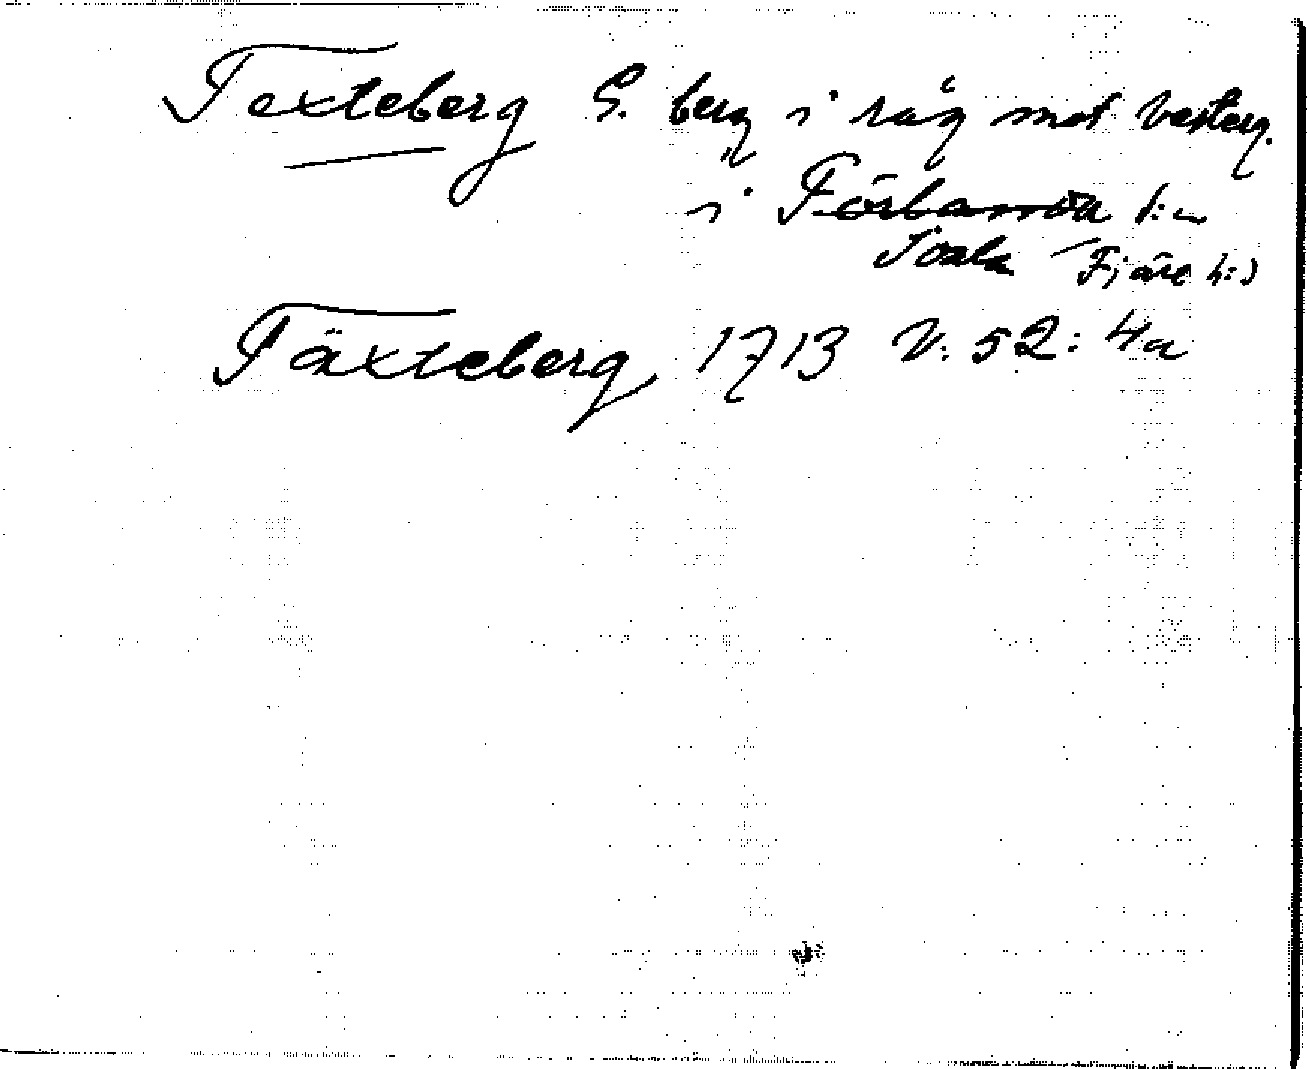 Texteberg S. berg i råg mot Västerg.
i Förlanda s:n
Fjäre h:d
Täxteberg 1713 V: 52: 4a